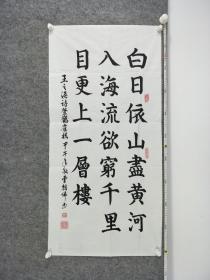 白日依山盡黄河
入海流欲窮千里
目更上一層樓
王之渙詩登鸛雀樓